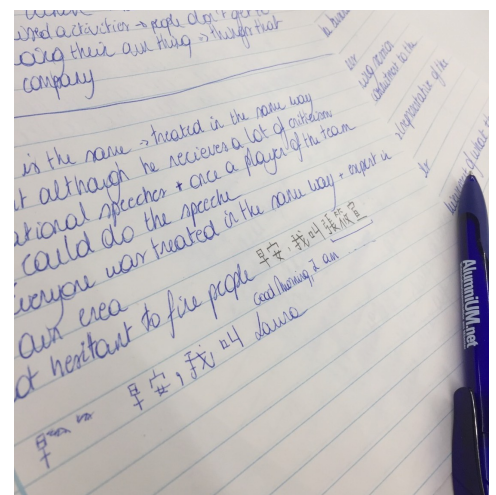 ised activities → people don't get to
oing their own thing → things that
company
is the same → treated in the same way
t although he recieves a lot of criticisms
ational speeches + once a player of the team
could do the speeche
veryone was treated in the same way + expert in
own erea
ot hesitant to fire people 早安,我叫張筱宣
Good Morning, I am
早安,我叫 Laura
早
using
commitment to the
representative of the
of what
AlumniUM.net